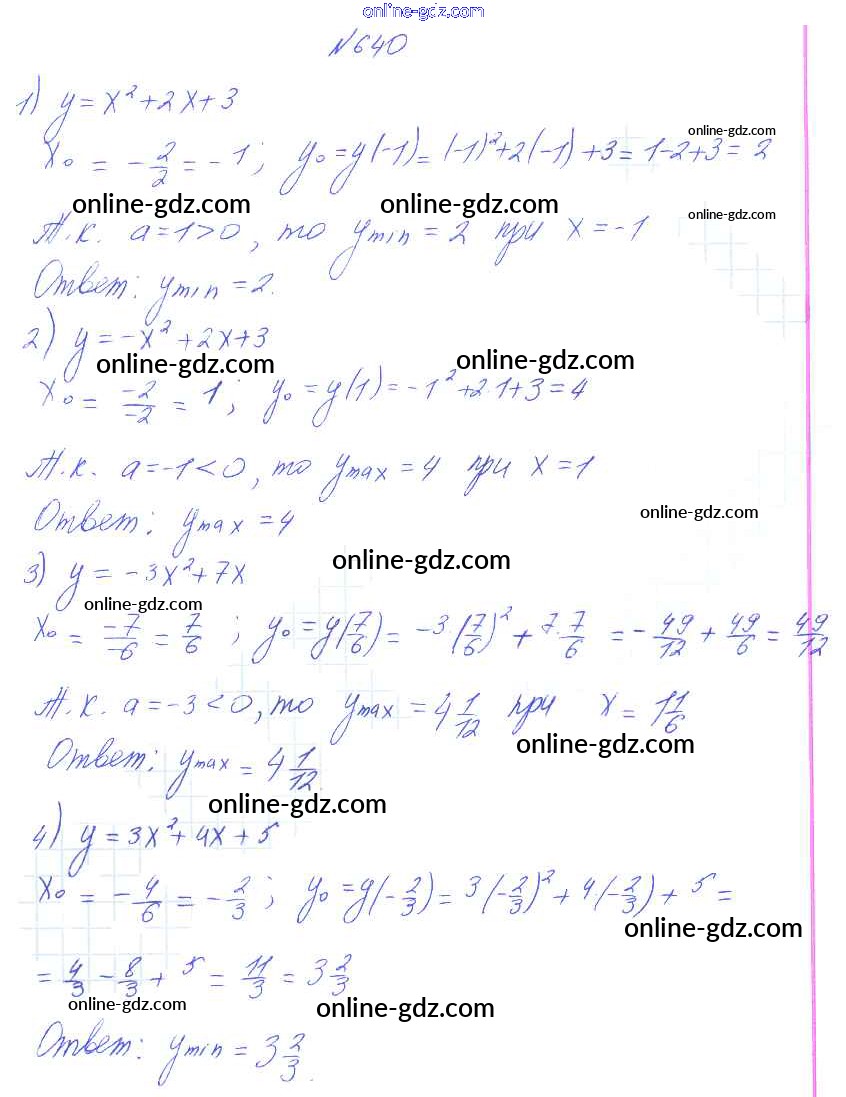 online-gdz.com
№640
1) y = x² + 2x + 3
online-gdz.com
x₀ = -2/2 = -1; y₀ = y(-1) = (-1)² + 2(-1) + 3 = 1-2+3 = 2
online-gdz.com online-gdz.com online-gdz.com
Т.к. a = 1 > 0, то y min = 2 при x = -1
Ответ: y min = 2.
2) y = -x² + 2x + 3
online-gdz.com online-gdz.com
x₀ = -2/-2 = 1; y₀ = y(1) = -1² + 2·1 + 3 = 4
Т.к. a = -1 < 0, то y max = 4 при x = 1
Ответ: y max = 4
online-gdz.com
3) y = -3x² + 7x
online-gdz.com
online-gdz.com
x₀ = -7/-6 = 7/6; y₀ = y(7/6) = -3(7/6)² + 7·7/6 = -49/12 + 49/6 = 49/12
Т.к. a = -3 < 0, то y max = 4 1/12 при x = 1 1/6
online-gdz.com
Ответ: y max = 4 1/12.
online-gdz.com
4) y = 3x² + 4x + 5
x₀ = -4/6 = -2/3; y₀ = y(-2/3) = 3(-2/3)² + 4·(-2/3) + 5 =
online-gdz.com
= 4/3 - 8/3 + 5 = 11/3 = 3 2/3
online-gdz.com online-gdz.com
Ответ: y min = 3 2/3.